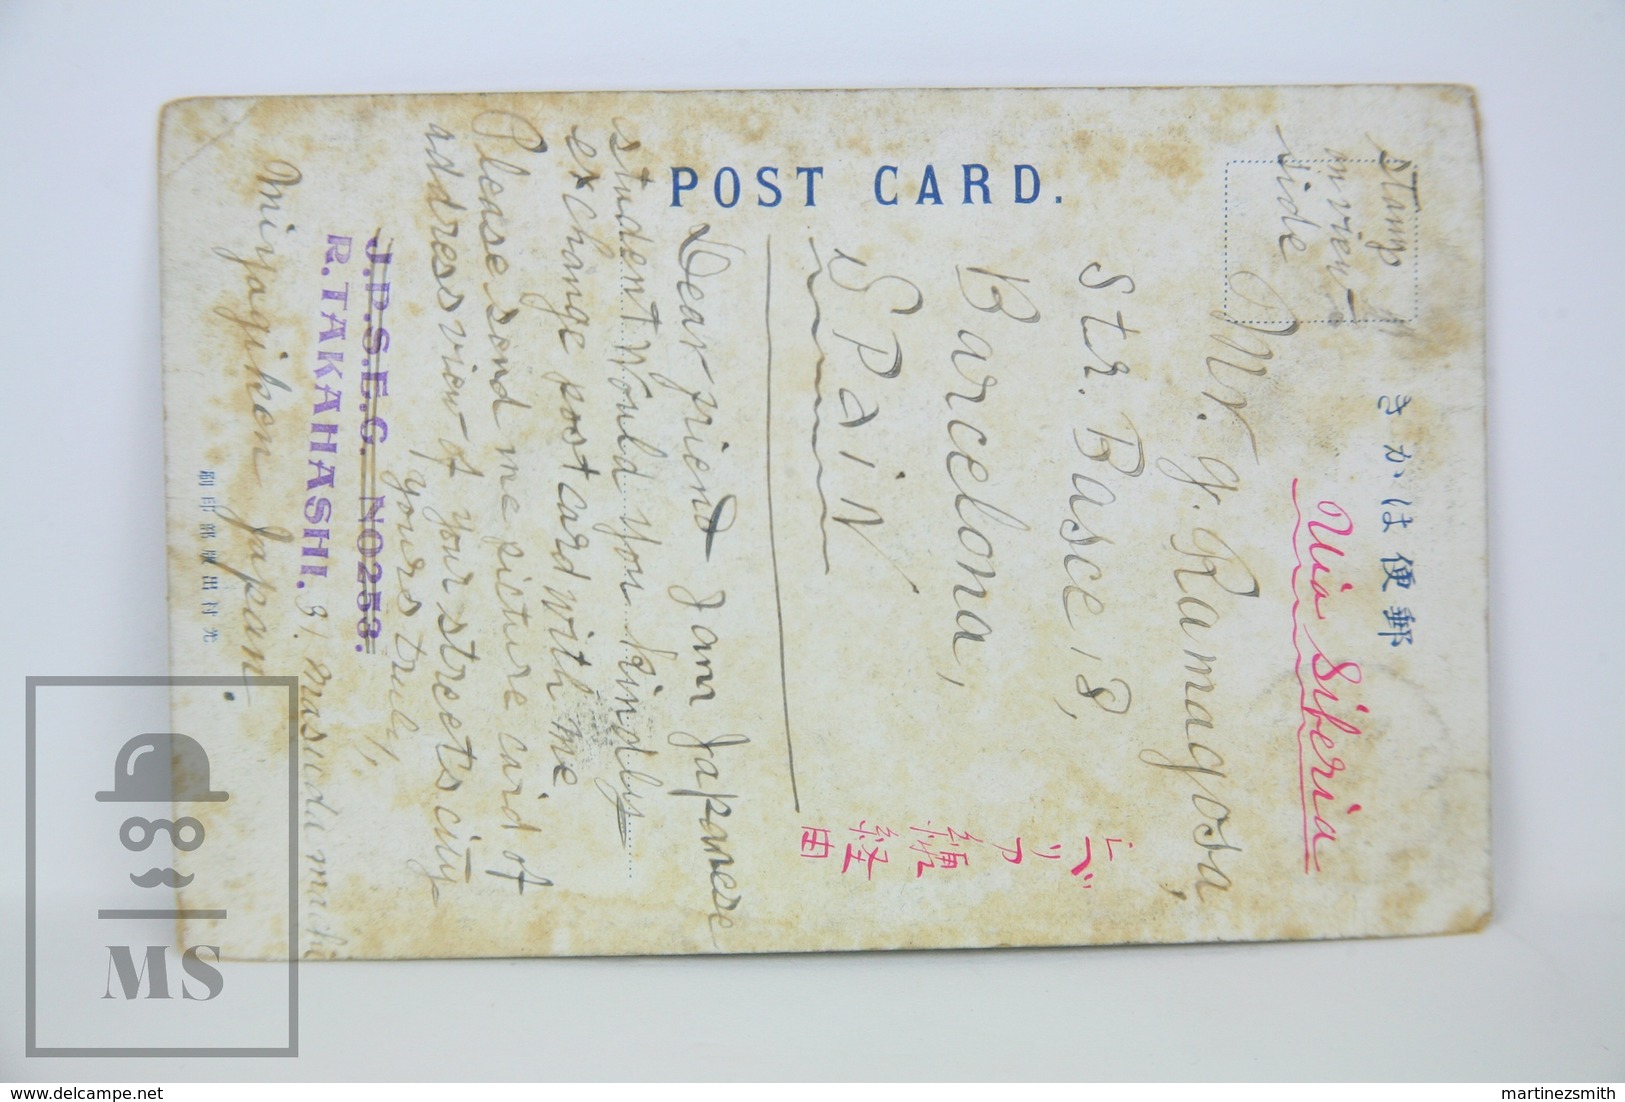 POST CARD.
きかは便郵
Stamp
on view
side
Via Siberia
Mr. J. Ramagosa,
Str. Basce, 8,
Barcelona,
SPaiN
シベリア線
経由
Dear friend I am Japanese
student Would you kindly
exchange post card with me
Please send me picture card of
address view of your streets city
yours truly,
J.P.S.E.C. NO253.
R. TAKAHASHI. 31. Masuda machi
Miyagiken Japan.
刷印部版出村光
MS
delcampe.net
martinezsmith